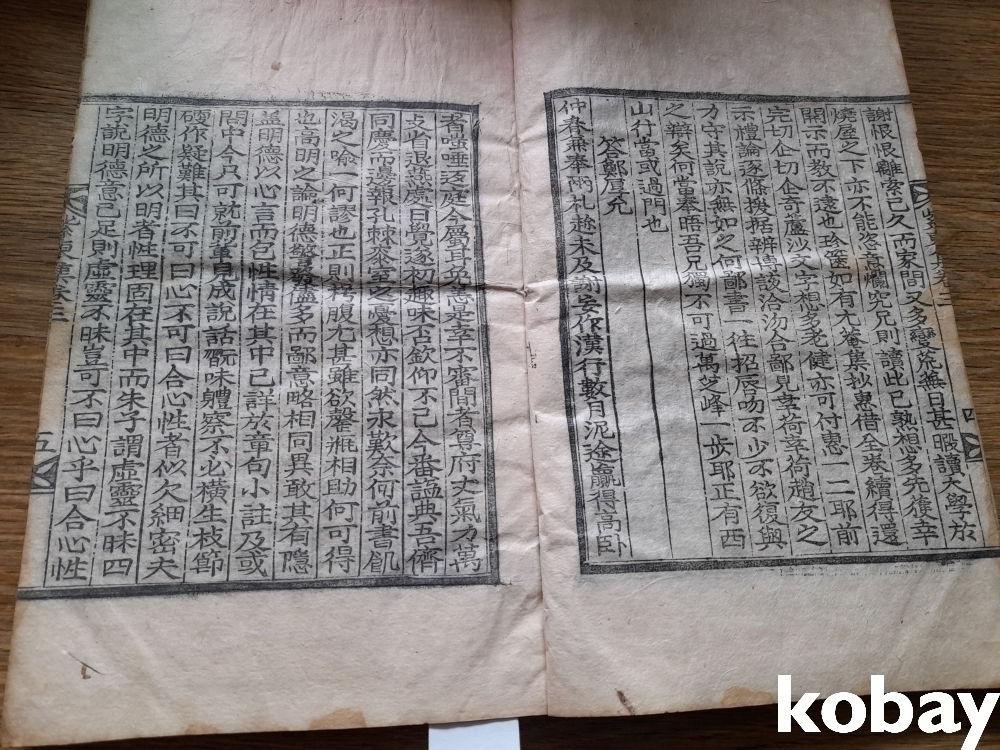 謝恨恨離索已久而家間又多變荒無日甚暇讀大學於
燒屋之下亦不能恣意爛究兄則讀此已熟想多先獲幸
開示而教不逮也珍篋如有尤菴集抄惠借全卷續得還
完切企切企奇蘆沙文字想多老健亦可付惠一二耶前
示禮論逐條援据辨博談洽沕合鄙見幸荷幸荷趙友之
力守其說亦無如之何鄙書一往招唇吻不少不欲復與
之辯矣何當奉晤吾兄獨不可過萬芝峰一步耶正有西
山行當或過門也
答鄭厚允
仲春兼奉兩札趁未及謝妄作漢行數月泥途贏得高臥
者嗤唾汲庭今屬耳免恙是幸不審間者尊府丈氣力萬
支省退燕處日覺遂初趣味否欽仰不已今番謚典吾儕
同慶而邊報孔棘泰室之憂想亦同然永歎奈何前書飢
渴之喩一何謬也正則枵腹尤甚雖欲罄甁相助何可得
也高明之論明德盤奧儘多而鄙意略相同異敢其有隱
盖明德以心言而包性情在其中已詳於章句小註及或
問中今只可就前輩見成說話翫味體察不必橫生枝節
硬作疑難其曰不可曰心不可曰合心性者似欠細密夫
明德之所以明者性理固在其中而朱子謂虛靈不昧四
字說明德意已足則虛靈不昧豈可不曰心乎曰合心性
五
kobay